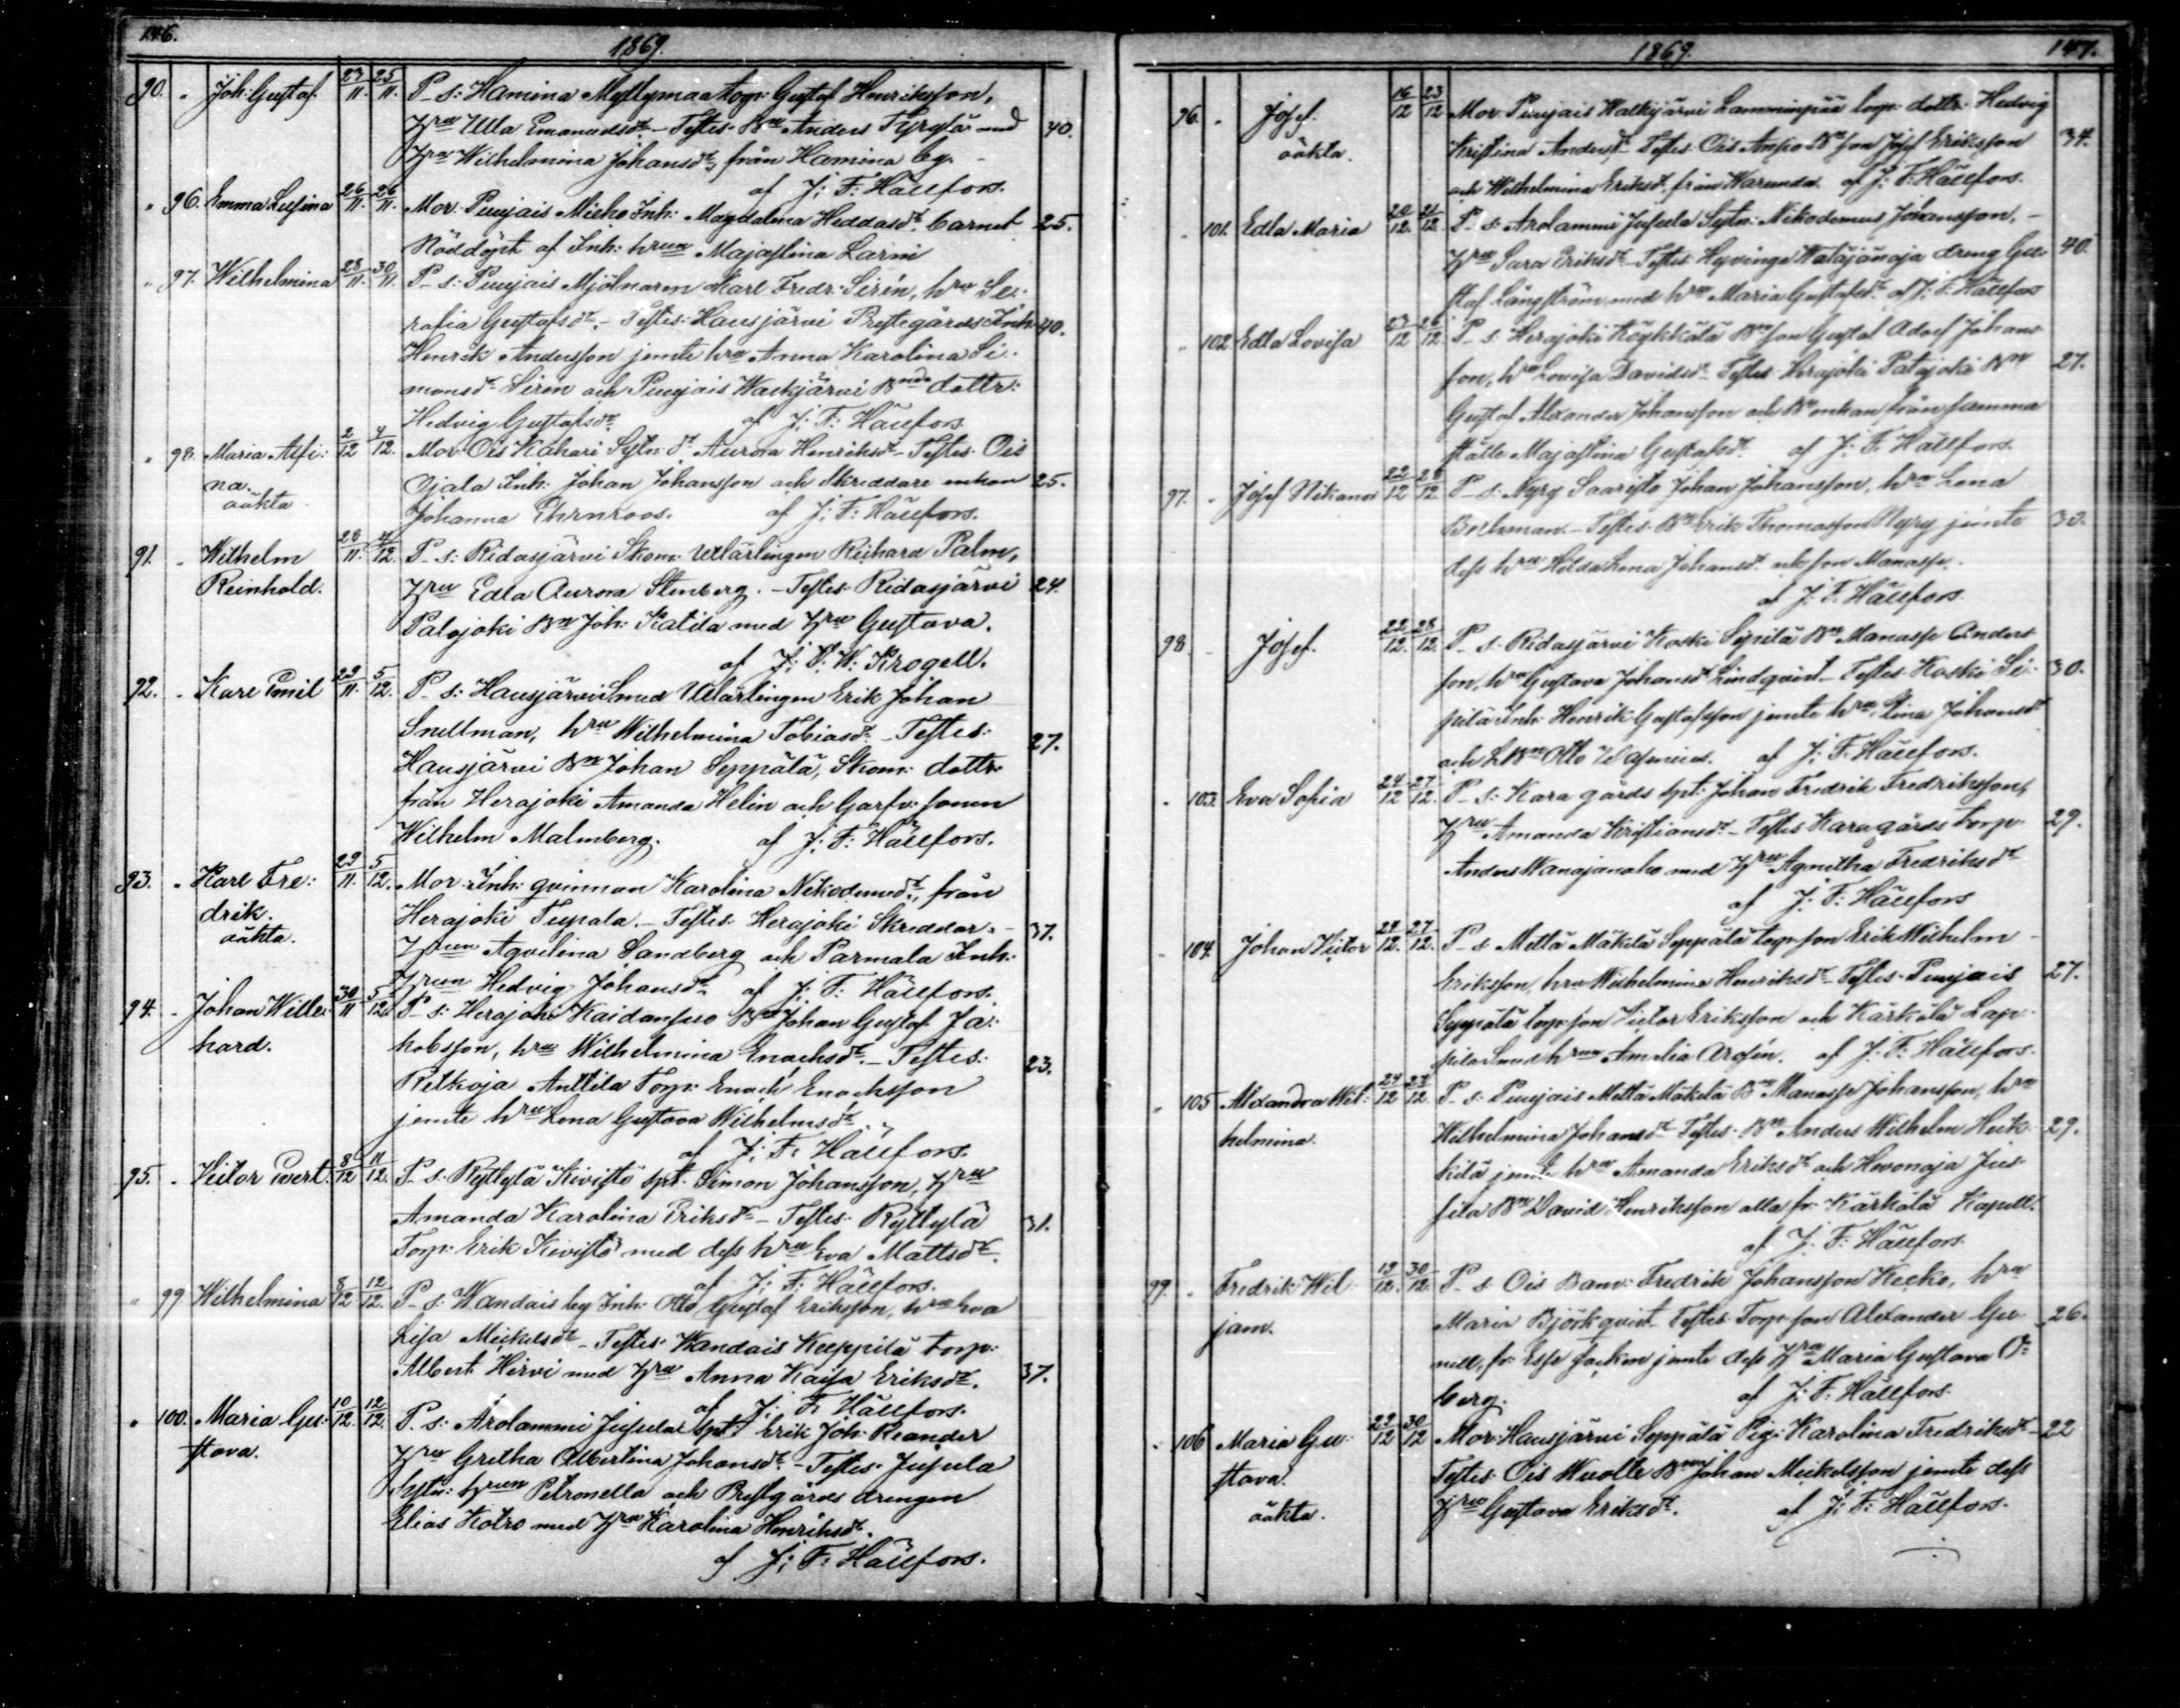 146.
1869.
90. " Joh: Gustaf. 23/11. 25/11. P_s: Hamina Myllymaa torp: Gustaf Henriksson,
Hru Ulla Emanuelsdr. – Testes: Bn Anders Tyrylä med 40.
Hru Wilhelmina Johansdr, från Hamina by. –
af J: F: Hällfors.
" 96. Emma Lusina 26/11. 26/11. Mor: Puujais Mieho Inh: Magdalena Heddasdr. barnet 25.
Nöddöpt af Inh: hrun Majastina Larni
" 97. Wilhelmina 28/11. 30/11. P_s: Puujais Mjölnaren Karl Fredr: Sirén, hru Se:
rafia Gustafsdr. – Testes: Hausjärvi Prestegårds Inh: 40.
Henrik Andersson jemte hru Anna Karolina Si:
monsdr Sirén och Puujais Walkjärvi Bnde dottr:
Hedvig Gustafsdr. af J: F: Hällfors
" 98. Maria Alfi: 2/12 4/12. Mor: Ois Kahari Sytn: dr Aurora Henriksdr – Testes: Ois
na. Ojala Inh: Johan Johansson och Skreddare enkan 25.
oäkta Johanna Ehrnroos. af J: F: Hällfors.
91. " Wilhelm 28/11. 4/12. P_s: Ridasjärvi Skom: Utlärlingen Richard Palm,
Reinhold. Hru Edla Aurora Stenberg. – Testes: Ridasjärvi 24.
Palojoki Bn Joh: Katila med Hru Gustava.
af J: V: W: Krogell.
92. " Karl Emil 29/11. 5/12. P_s: Hausjärvi Smed Utlärlingen Erik Johan
Snellman, hru Wilhelmina Tobiasdr – Testes: 27.
Hausjärvi Bn Johan Seppälä, Skom: dottr:
från Herajoki Amanda Helin och Garfv: sonen
Wilhelm Malmberg. af J: F: Hällfors.
93. " Karl Fre: 29/11. 5/12. Mor: Inh: qvinnan Karolina Nikodemusdr, från
drik. Herajoki Teepala – Testes: Herajoki Skreddar: – 37.
oäkta. Hrun Aqvilina Sandberg och Parmala Inh:
Hrun Hedvig Johansdr. af J: F: Hällfors.
94. " Johan Wille: 30/11 5/12. P_s: Herajoki Kaidansuo Bn Johan Gustaf Ja:
hard. kobsson, hru Wilhelmina Enochsdr. – Testes: 23.
Retkoja Anttila Torp: Enoch Enochsson
jemte hru Lena Gustava Wilhelmsdr.
af J: F: Hällfors.
95. " Victor Evert. 8/12 11/12. P_s: Ryttylä Kivistö spt: Simon Johansson, Hru
Amanda Karolina Eriksdr – Testes: Ryttylä 31.
Torp: Erik Kivistö med dess hru Eva Mattsdr.
af J: F: Hällfors.
" 99 Wilhelmina 8/12 12/12. P_s: Wandais by Inh: Otto Gustaf Eriksson, hru Eva
Lisa Mickelsdr – Testes: Wandais Keeppilä torp:
Albert Hirvi med Hru Anna Kaisa Eriksdr. 37.
af J: F: Hällfors.
" 100. Maria Gu: 10/12. 12/12. P. s: Arolammi Jusula spt: Erik Joh: Reander
stava. Hru Gretha Albertina Johansdr. – Testes: Jusula
Sytn: hrun Petronella och Prestgårds drengen
Elias Kotro med Hru Karolina Henriksdr.
af J: F: Hällfors.
1869.
147.
96. " Josef. 16/12 23/12 Mor: Puujais Walkjärvi Lamminpää torp: dottr: Hedvig
oäkta. Kristina Andersdr – Testes: Ois Anso Bn son Josef Eriksson 34.
och Wilhelmina Eriksdr från Warunda. af J: F: Hällfors.
" 101. Edla Maria 20/12. 21/12. P_s: Arolammi Jusula Sytn: Nikodemus Johansson, –
Hru Sara Eriksdr – Testes: Hyvinge Watajänoja dreng Gu: 40.
staf Långström med hru Maria Gustafsdr. af J: F: Hällfors
" 102 Edla Lovisa 23/12 26/12. P_s: Herajoki Köykkälä Bn son Gustaf Adolf Johans
son, hru Lovisa Davidsdr – Testes: Herajoki Palojoki Bn 27.
Gustaf Alexander Johansson och Bn enkan från samma
ställe Majastina Gustafsdr. af J: F: Hällfors.
97. " Josef Nikanor 22/12 28/12. P_s: Nyry Saaristo Johan Johansson, hru Lena
Berkman. – Testes: Bn Erik Thomasson Nyry jemte 30.
dess hru Hedda Lena Johansdr och son Manasse.
af J: F: Hällfors.
98 " Josef. 22/12. 28/12. P_s: Ridasjärvi Koski Sipilä Bn Manasse Anders
son, hru Gustava Johansdr Lindqvist – Testes: Koski Si: 30.
pilä Inh: Henrik Gustafsson jemte hru Stina Johansdr
och LBn Otto Wasenius. af J: F: Hällfors.
" 103. Eva Sofia 24/12 27/12. P_s: Kara gårds spt: Johan Fredrik Fredriksson,
Hru Amanda Kristiansdr – Testes: Kara gårds torp: 29.
Anders Wanajanaho med Hru Agnetha Fredriksdr
af J: F: Hällfors
" 104. Johan Victor 24/12. 27/12. P_s: Mettä Mäkelä Seppälä torp: son Erik Wilhelm
Eriksson, hru Wilhelmina Henriksdr – Testes: Puujais 27.
Seppälä torp: son Victor Eriksson och Kärkölä Lap:
pila Smed hrun Amelia Arosén. af J: F: Hällfors.
" 105 Alexandra Wil: 24/12 27/12. P_s: Puujais Mettä Mäkelä Bn Manasse Johansson, hru
helmina. Wilhelmina Johansdr – Testes: Bn Anders Wilhelm Heik: 29.
kilä jemte hru Amanda Eriksdr och Hevonoja Jus:
sila Bn David Henriksson alla fr: Kärkölä Kapell.
af J: F: Hällfors.
99. " Fredrik Wil: 19/12. 30/12. P_s: Ois Banv: Fredrik Johansson Keeko, hru
jam. Maria Björkqvist – Testes: Torp: son Alexander Gu: 26.
nell, fr: Esse socken jemte dess Hru Maria Gustava Ö:
berg. af J: F: Hällfors.
" 106 Maria Gu: 29/12 30/12 Mor: Hausjärvi Seppälä Pig: Karolina Fredriksdr – 22
stava. Testes: Ois Wuolle Bn Johan Mickelsson jemte dess
oäkta. Hru Gustava Eriksdr. af J: F: Hällfors.